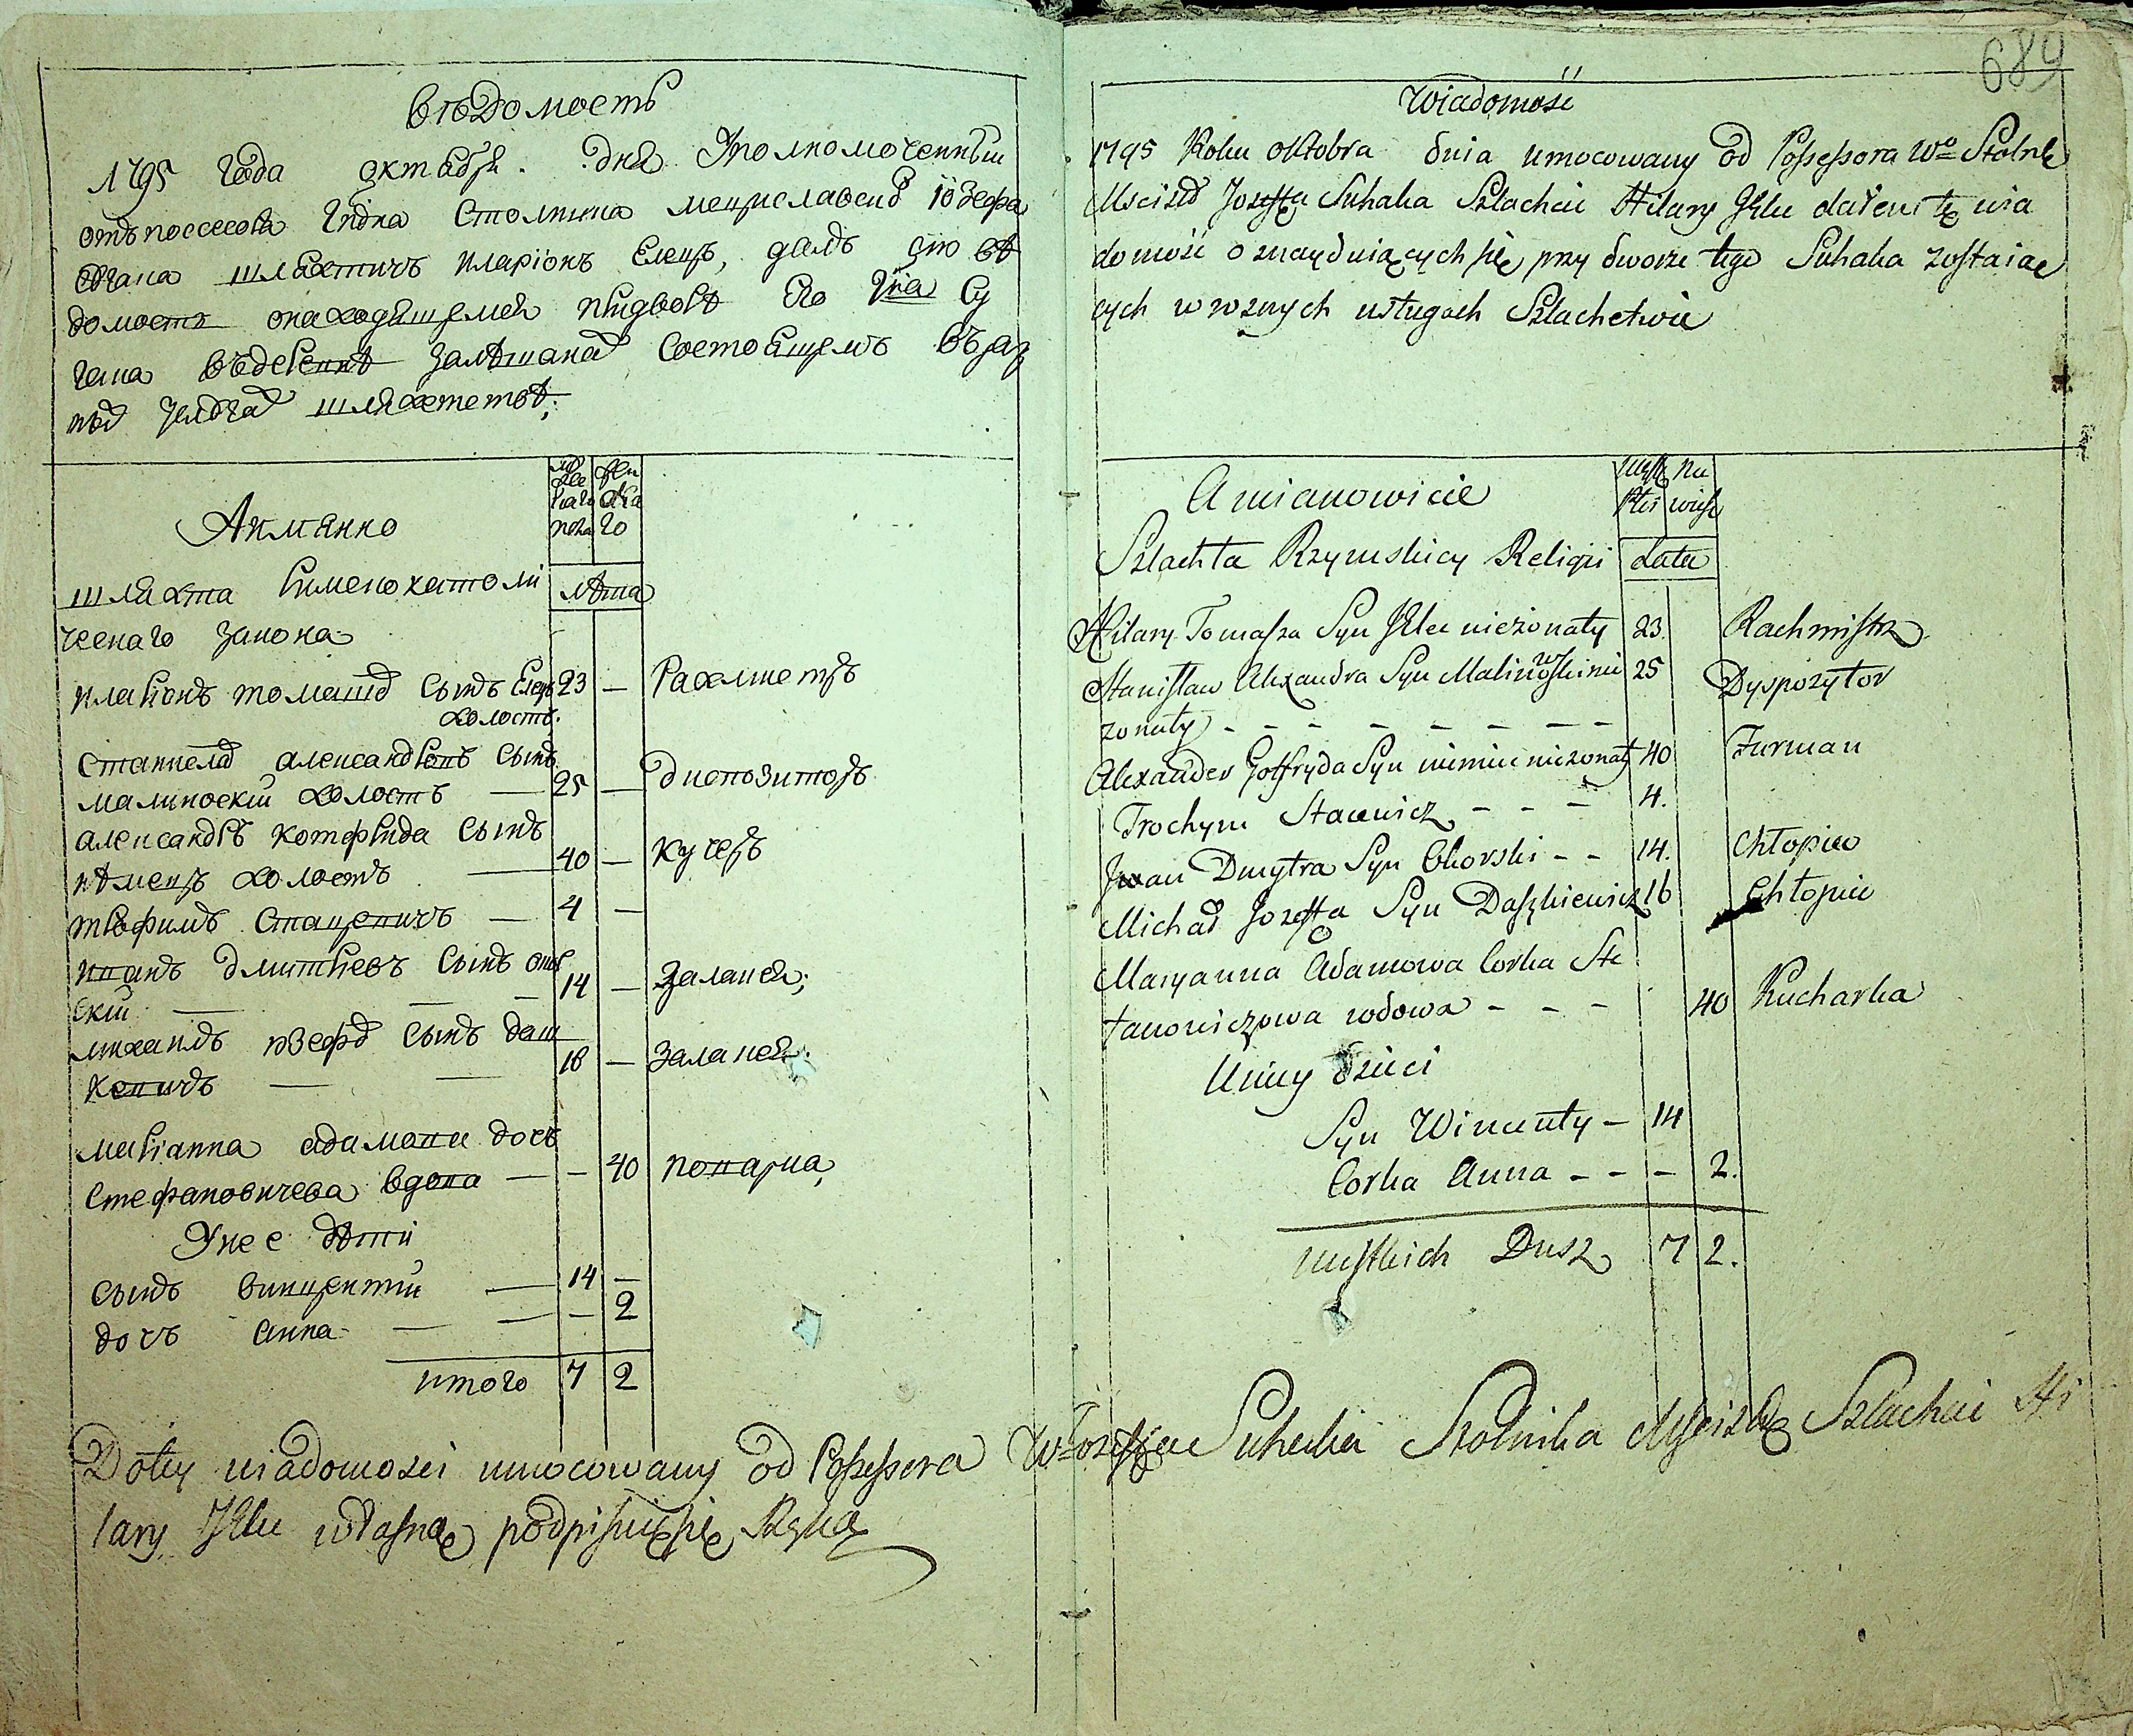 вѣдомость
1795 года октября. дня Уполномоченный
отъ поссесора Гдна Столника мстиславскᵒ іозефа
Сугана шляхтичъ иларіонъ Елецъ, далъ сію вѣ
домость онаходящемся придворѣ Его Гна Су
гана въдеревнѣ состоящемъ въраз
ныхъ услугахъ шляхетствѣ;
Аимянно
муж
ска
го
пола
жен
ска
го
лѣта
шляхта Римскокатоли
ческаго закона
иларіонъ томашᵒ сынъ Елецъ
холостъ.
23 — Рахмистръ
станислᵒ александровъ сынъ
малиновскій холостъ — 25 — диспозиторъ
александръ котфрида сынъ
нѣмецъ холостъ — 40 — кучеръ
трофимъ стацевичъ — 4 —
иванъ дмитріевъ сынъ
скій — — — 14 — Залакея;
михаилъ юзефᵒ сынъ даш
кевичъ — — 16 — Залакея.
маріанна адамова дочь
Стефановичева вдова — — 40 поварка,
Унее дѣти
сынъ винцентій — 14 —
дочь анна — — — 2
итого 7 2
689
Wiadomość
1795 Roku Oktobra dnia umocowany od Possessora Wᵒ Stolnk
Mscisłᵒ Jozeffa Suhaka Szlachcic Hilary Jelec dałem tę wia
domość o znayduiących się przy dworze tego Suhaka zostaiąc
cych w roznych usługach Szlachetwie
Amianowicie
męsk
kiei
nie
wiesc
Szlachta Rzymskiey Religii
Lata
Hilary Tomasza Syn Jelec nieżonaty 23. Rachmistrz
Stanisław Alexandra Syn Malinowski nie 25 Dyspozytor
zonaty - - - - - - -
Alexander Gotfryda Syn niemiec niezonaty 40 Furman
Trochym Stacewicz - - - 4.
Jwan Dmytra Syn - - 14. Chłopiec
Michał Jozeffa Syn Daszkiewicz 16 Chłopiec
Maryanna Adamowa Corka Ste
fanowiczowa wdowa - - - 40 Kucharka
Uniey dzieci
Syn Wincenty - 14
Corka Anna - - - 2.
wszystkich Dusz 7 2.
Dotey wiadomosci umocowany od Possessora Wᵒ Jozeffa Suhaka Stolnika Mscisłᵒ Szlachcic Hi
lary Jelec własną podpisuię się Ręką